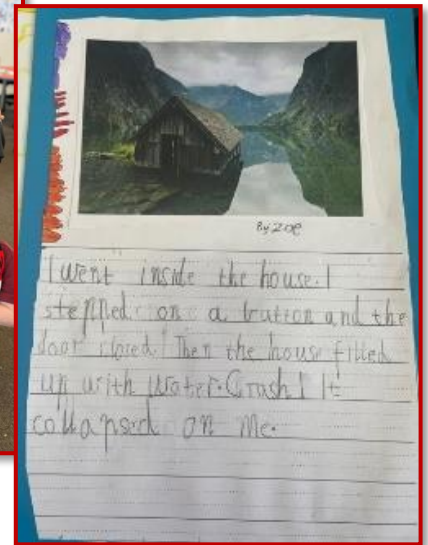 By Zoe
I went inside the house. I
stepped on a button and the
door closed! Then the house filled
up with water. Crash! It
collapsed on me.